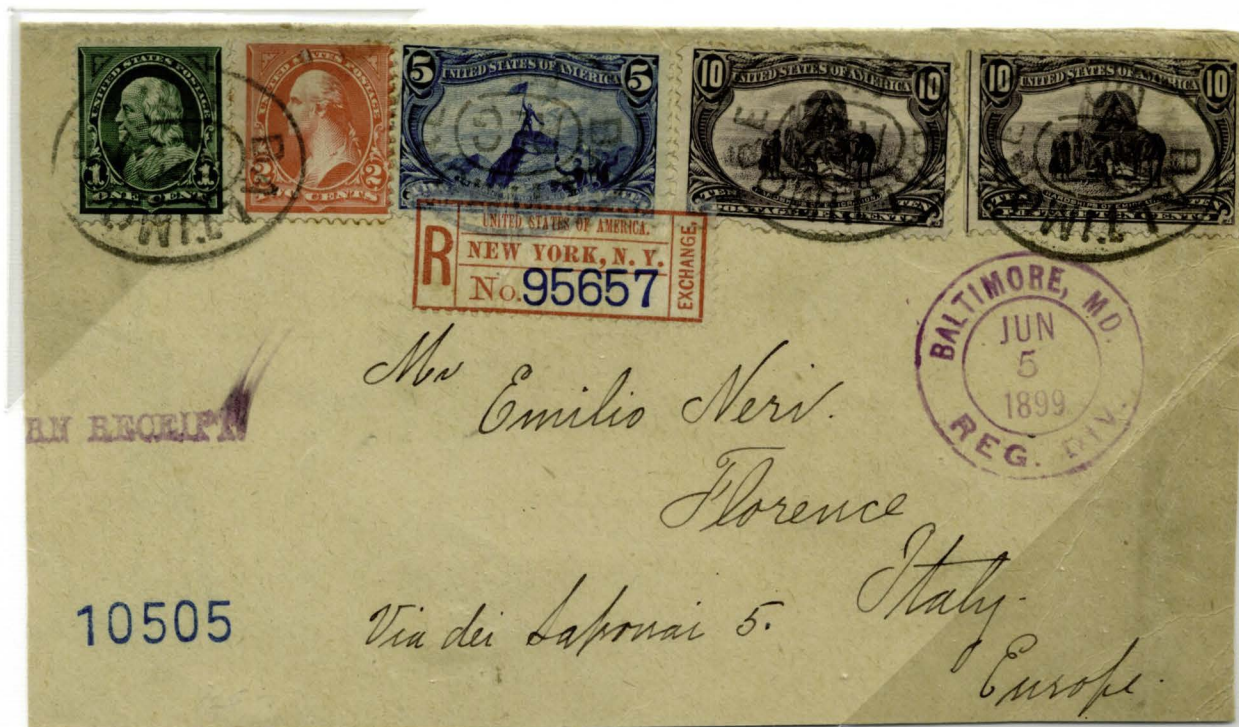 UNITED STATES POSTAGE
1 1
ONE CENT
UNITED STATES POSTAGE
2 2
TWO CENTS
5 UNITED STATES OF AMERICA 5
10 UNITED STATES OF AMERICA 10
10 UNITED STATES OF AMERICA 10
R
UNITED STATES OF AMERICA.
NEW YORK, N. Y.
No. 95657
EXCHANGE
BALTIMORE, MD.
JUN
5
1899
REG. DIV.
RN RECEIPT
Mr Emilio Neri.
Florence
Italy.
Via dei Saponai 5.
Europe.
10505